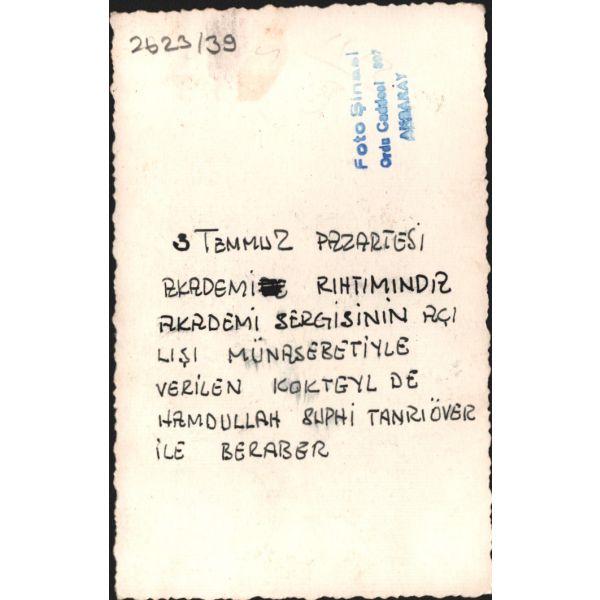 2623/39
Foto Şinasi
Ordu Caddesi 307
AKSARAY
3 TEMMUZ PAZARTESİ
AKADEMİ RIHTIMINDA
AKADEMİ SERGİSİNİN AÇI
LIŞI MÜNASEBETİYLE
VERİLEN KOKTEYL DE
HAMDULLAH SUPHİ TANRIÖVER
İLE BERABER